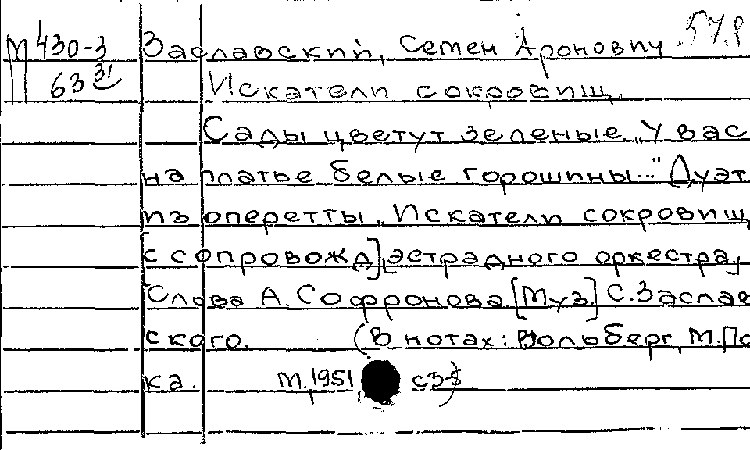 М 430-3 Заславский, Семен Аронович 578
63 31 Искатели сокровищ.
Сады цветут зеленые. „У вас
на платье белые горошины..." Дуэт
из оперетты „Искатели сокровищ,
[с сопровожд] эстрадного оркестра,
Слова А. Софронова [Муз] С. Заслав
ского. (В нотах: Вольберг, М. По
ка. М, 1951, с 3-8